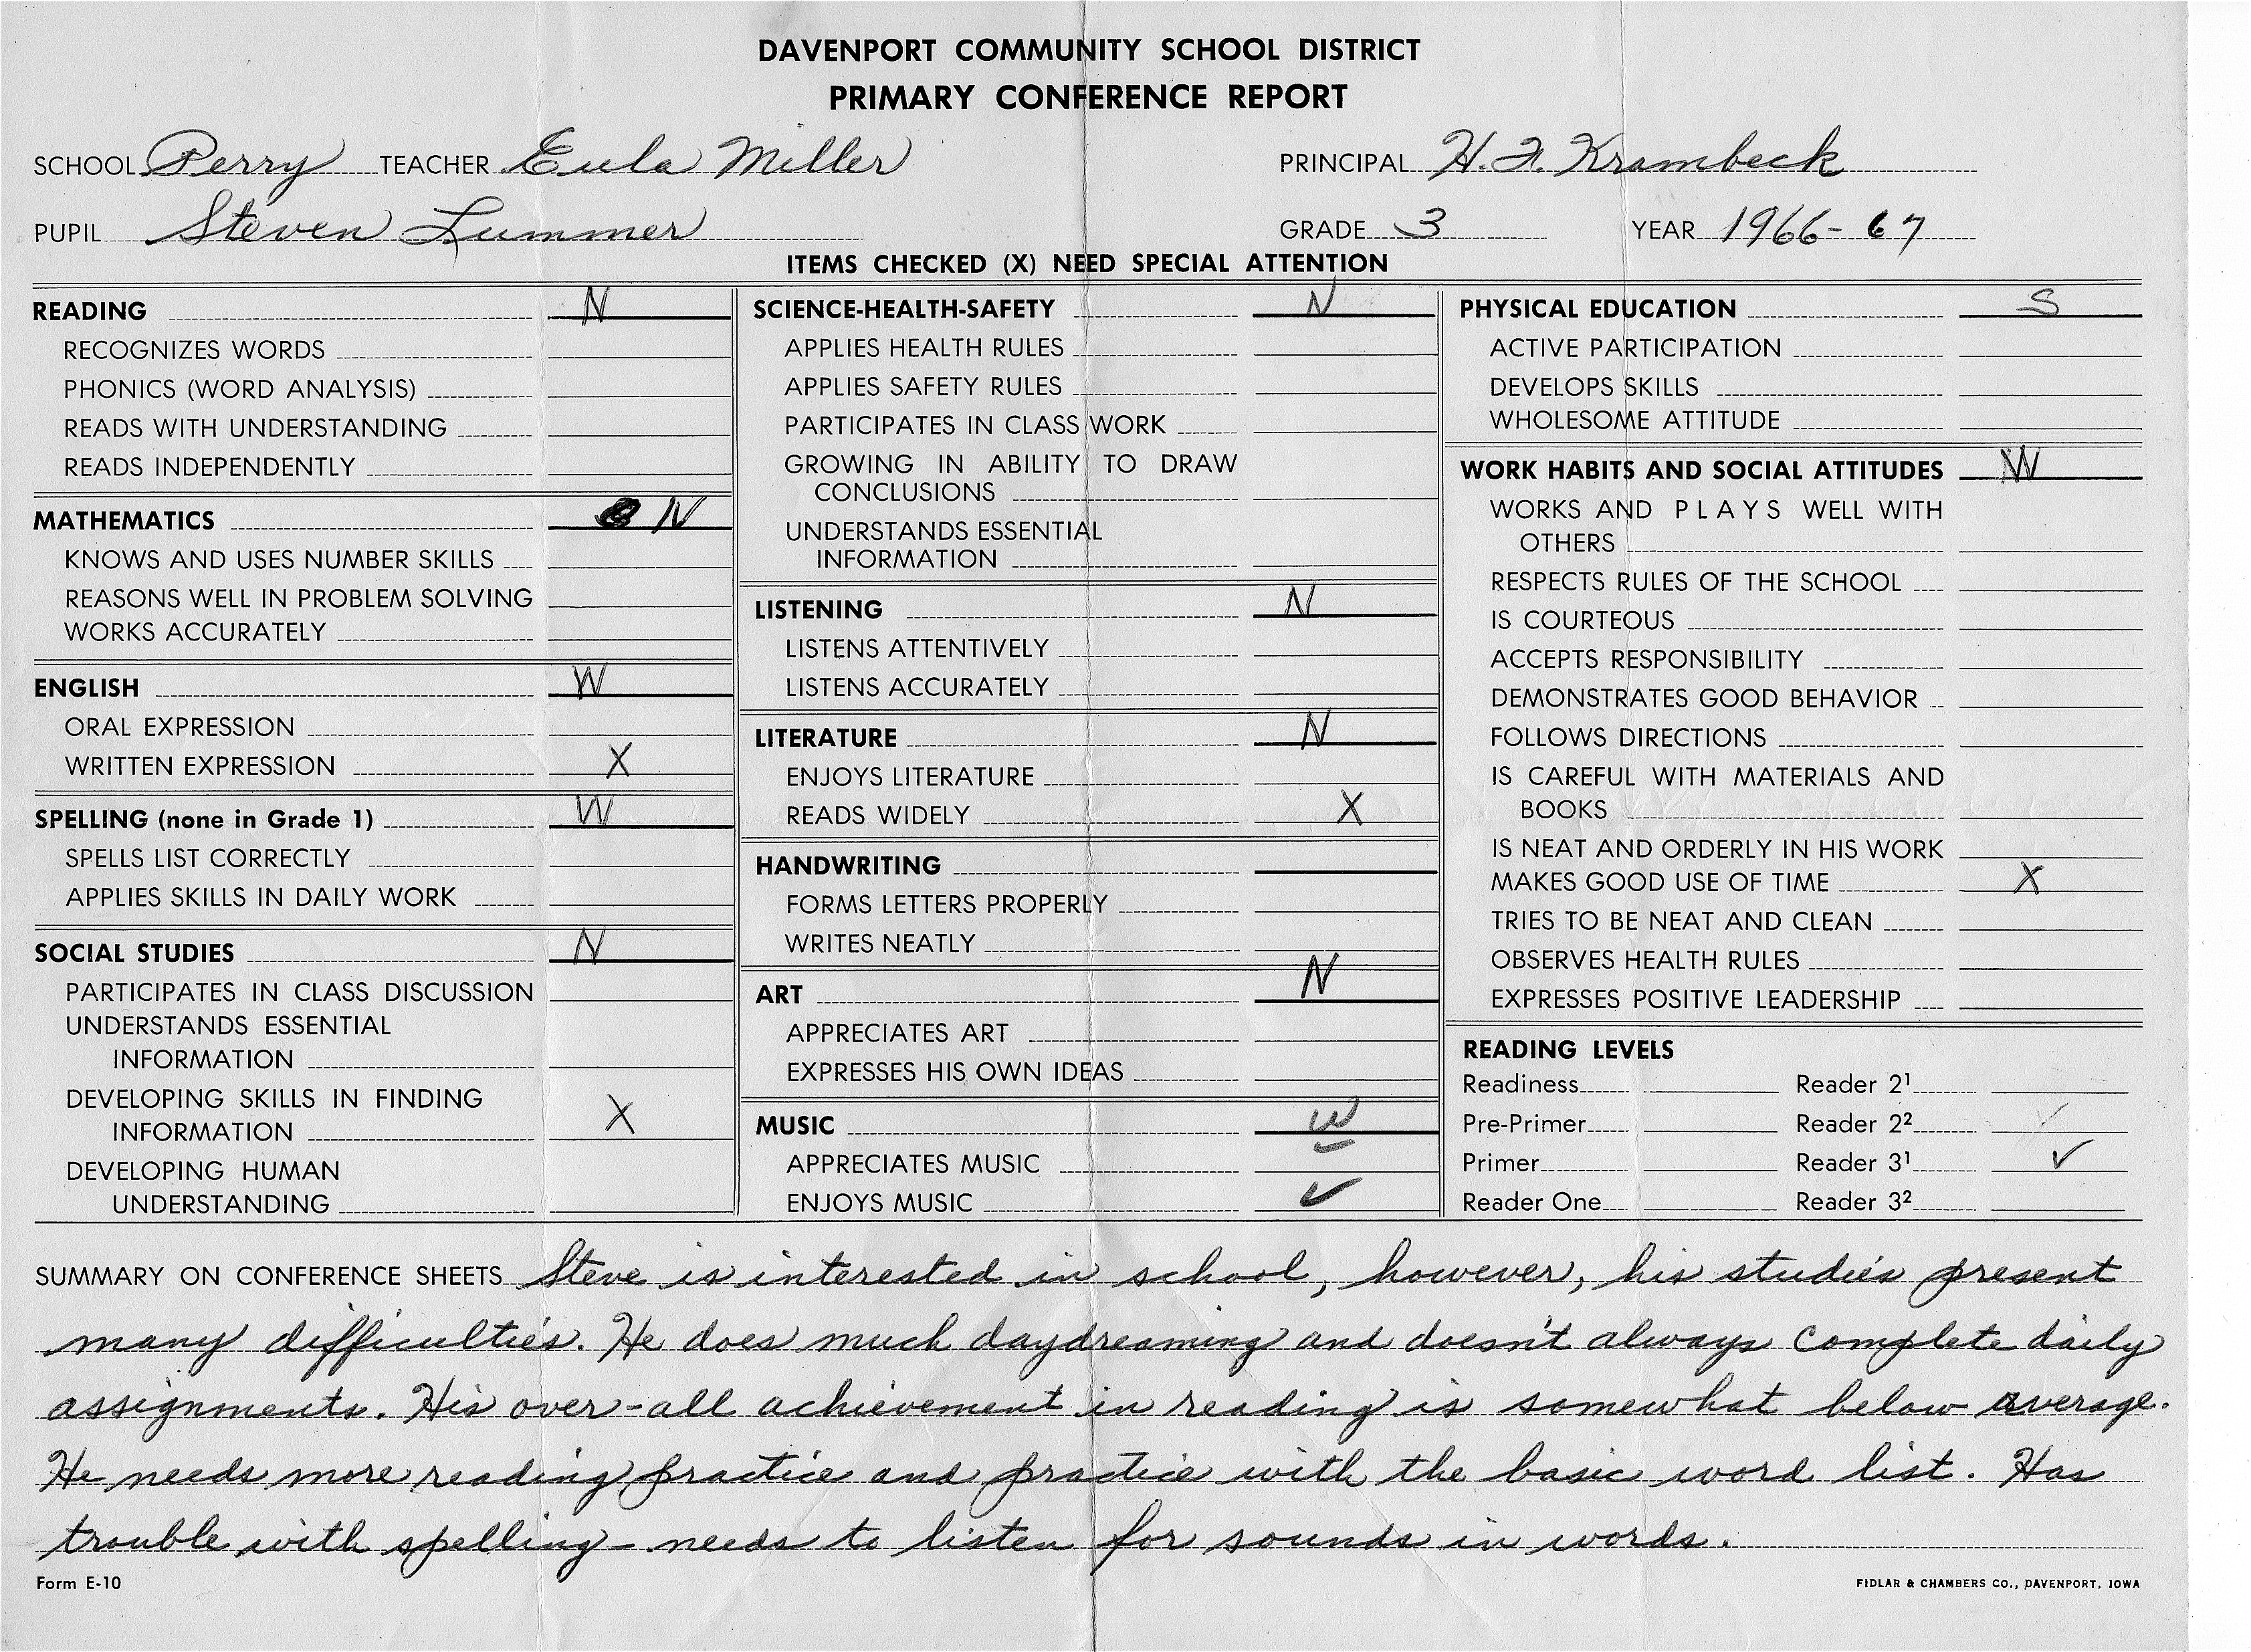 DAVENPORT COMMUNITY SCHOOL DISTRICT
PRIMARY CONFERENCE REPORT
SCHOOL Perry TEACHER Eula Miller PRINCIPAL H. F. Krambeck
PUPIL Steven Lummer GRADE 3 YEAR 1966-67
ITEMS CHECKED (X) NEED SPECIAL ATTENTION
READING N
RECOGNIZES WORDS
PHONICS (WORD ANALYSIS)
READS WITH UNDERSTANDING
READS INDEPENDENTLY
MATHEMATICS N
KNOWS AND USES NUMBER SKILLS
REASONS WELL IN PROBLEM SOLVING
WORKS ACCURATELY
ENGLISH W
ORAL EXPRESSION
WRITTEN EXPRESSION X
SPELLING (none in Grade 1) W
SPELLS LIST CORRECTLY
APPLIES SKILLS IN DAILY WORK
SOCIAL STUDIES N
PARTICIPATES IN CLASS DISCUSSION
UNDERSTANDS ESSENTIAL
INFORMATION
DEVELOPING SKILLS IN FINDING
INFORMATION X
DEVELOPING HUMAN
UNDERSTANDING
SCIENCE-HEALTH-SAFETY N
APPLIES HEALTH RULES
APPLIES SAFETY RULES
PARTICIPATES IN CLASS WORK
GROWING IN ABILITY TO DRAW
CONCLUSIONS
UNDERSTANDS ESSENTIAL
INFORMATION
LISTENING N
LISTENS ATTENTIVELY
LISTENS ACCURATELY
LITERATURE N
ENJOYS LITERATURE
READS WIDELY X
HANDWRITING
FORMS LETTERS PROPERLY
WRITES NEATLY
ART N
APPRECIATES ART
EXPRESSES HIS OWN IDEAS
MUSIC W
APPRECIATES MUSIC
ENJOYS MUSIC ✓
PHYSICAL EDUCATION S
ACTIVE PARTICIPATION
DEVELOPS SKILLS
WHOLESOME ATTITUDE
WORK HABITS AND SOCIAL ATTITUDES W
WORKS AND PLAYS WELL WITH
OTHERS
RESPECTS RULES OF THE SCHOOL
IS COURTEOUS
ACCEPTS RESPONSIBILITY
DEMONSTRATES GOOD BEHAVIOR
FOLLOWS DIRECTIONS
IS CAREFUL WITH MATERIALS AND
BOOKS
IS NEAT AND ORDERLY IN HIS WORK
MAKES GOOD USE OF TIME X
TRIES TO BE NEAT AND CLEAN
OBSERVES HEALTH RULES
EXPRESSES POSITIVE LEADERSHIP
READING LEVELS
Readiness Reader 2¹
Pre-Primer Reader 2² ✓
Primer Reader 3¹ ✓
Reader One Reader 3²
SUMMARY ON CONFERENCE SHEETS Steve is interested in school, however, his studies present
many difficulties. He does much daydreaming and doesn't always complete daily
assignments. His over-all achievement in reading is somewhat below average.
He needs more reading practice and practice with the basic word list. Has
trouble with spelling - needs to listen for sounds in words.
Form E-10 FIDLAR & CHAMBERS CO., DAVENPORT, IOWA